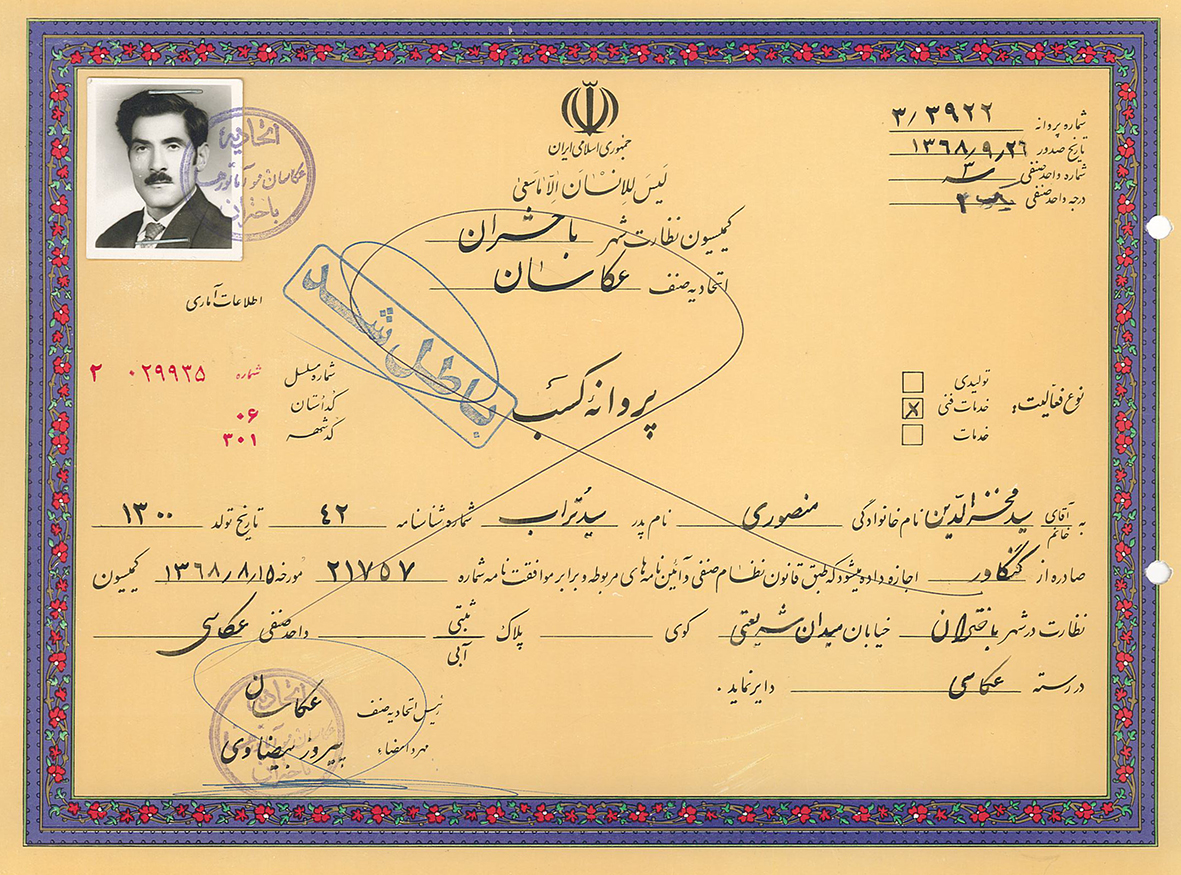 جمهوری اسلامی ایران
لَیسَ لِلاِنْسٰانَ اِلّا مٰاسَعیٰ
کمیسیون نظارت شهر باختران
اتحادیه صنف عکاسان
شماره پروانه ۳/۳۹۲۲
تاریخ صدور ۱۳۶۸/۹/۲۶
شماره واحد صنفی ۳
درجه واحد صنفی
اتحادیه
باختران
اطلاعات آماری
شماره مسلسل شماره ۰۲۹۹۳۵ ۲
کد استان ۰۶
کد شهر ۳۰۱
باطل شد
پروانهٔ کسب
نوع فعالیت:
تولیدی
خدمات فنی x
خدمات
به آقای خانم سید فخرالدین نام خانوادگی منصوری نام پدر سید تراب شماره شناسنامه ۴۲ تاریخ تولد ۱۳۰۰
صادره از کنگاور اجازه داده میشود که طبق قانون نظام صنفی و آئین نامه های مربوطه و برابر موافقت نامه شماره ۲۱۷۵۷ مورخه ۱۳۶۸/۸/۱۵ کمیسیون
نظارت در شهر باختران خیابان میدان شریعتی کوی پلاک ثبتی آبی واحد صنفی عکاسی
در رسته عکاسی دایر نماید.
رئیس اتحادیه صنف عکاسان
مهر و امضاء بیضاوی
اتحادیه
باختران